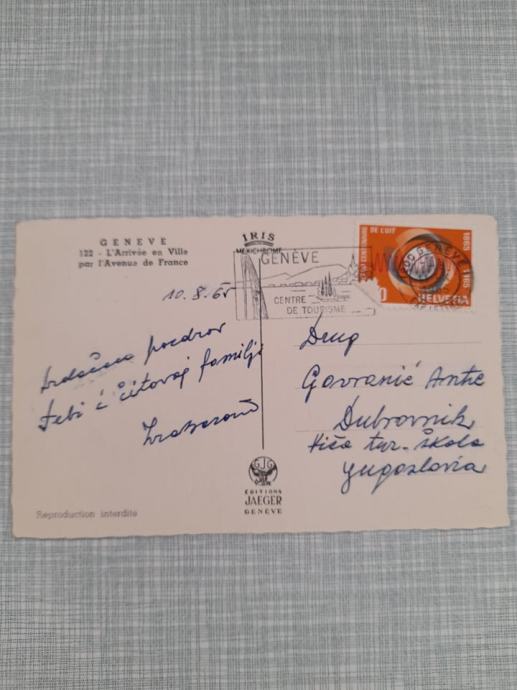 GENEVE
122 - L'Arrivée en Ville
par l'Avenue de France
IRIS
MEXICHROME
GENÈVE
CENTRE
DE TOURISME
DE L'UIT
1865 1965
HELVETIA
10.8.65
Srdačan pozdrav
tebi i čitavoj familji
Drug
Gavranić Ante
Dubrovnik
Viša tur. škola
Yugoslavia
GJG
EDITIONS
JAEGER
GENÈVE
Reproduction interdite